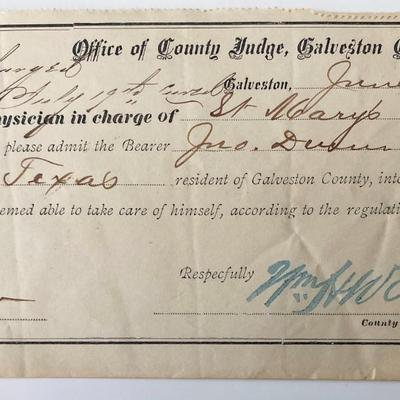 Office of County Judge, Galveston C
July 19th
Galveston, June
ysician in charge of St Mary's
please admit the Bearer Jno. Dunn
Texas resident of Galveston County, into
emed able to take care of himself, according to the regulati
Respecfully Wm H
County